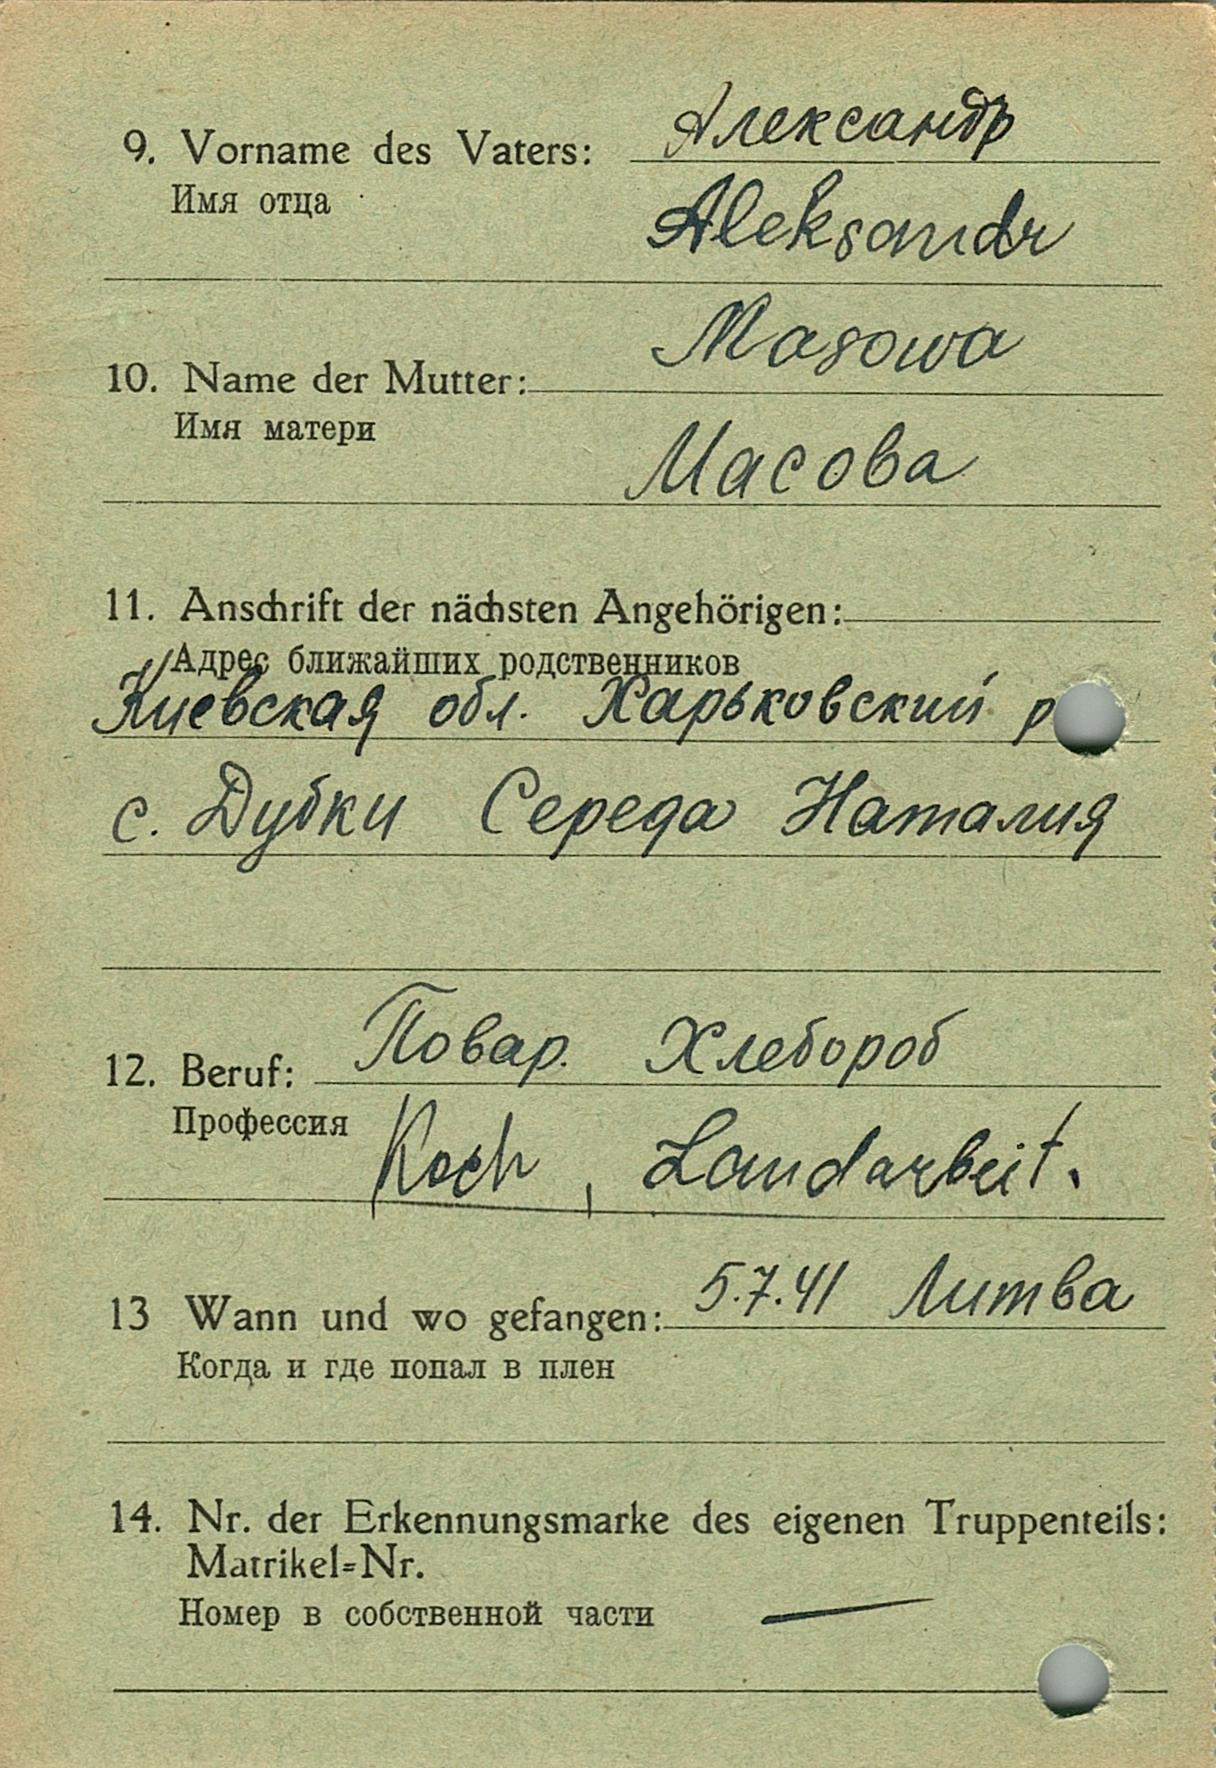 Александр
9. Vorname des Vaters:
Имя отца
Aleksandr
Masowa
10. Name der Mutter:
Имя матери
Масова
11. Anschrift der nächsten Angehörigen:
Адрес ближайших родственников
Киевская обл. Харьковский р
с. Дубки Середа Наталия
12. Beruf: Повар. Хлебороб
Профессия
Koch, Landarbeit.
13 Wann und wo gefangen: 5.7.41 Литва
Когда и где попал в плен
14. Nr. der Erkennungsmarke des eigenen Truppenteils:
Matrikel=Nr.
Номер в собственной части —